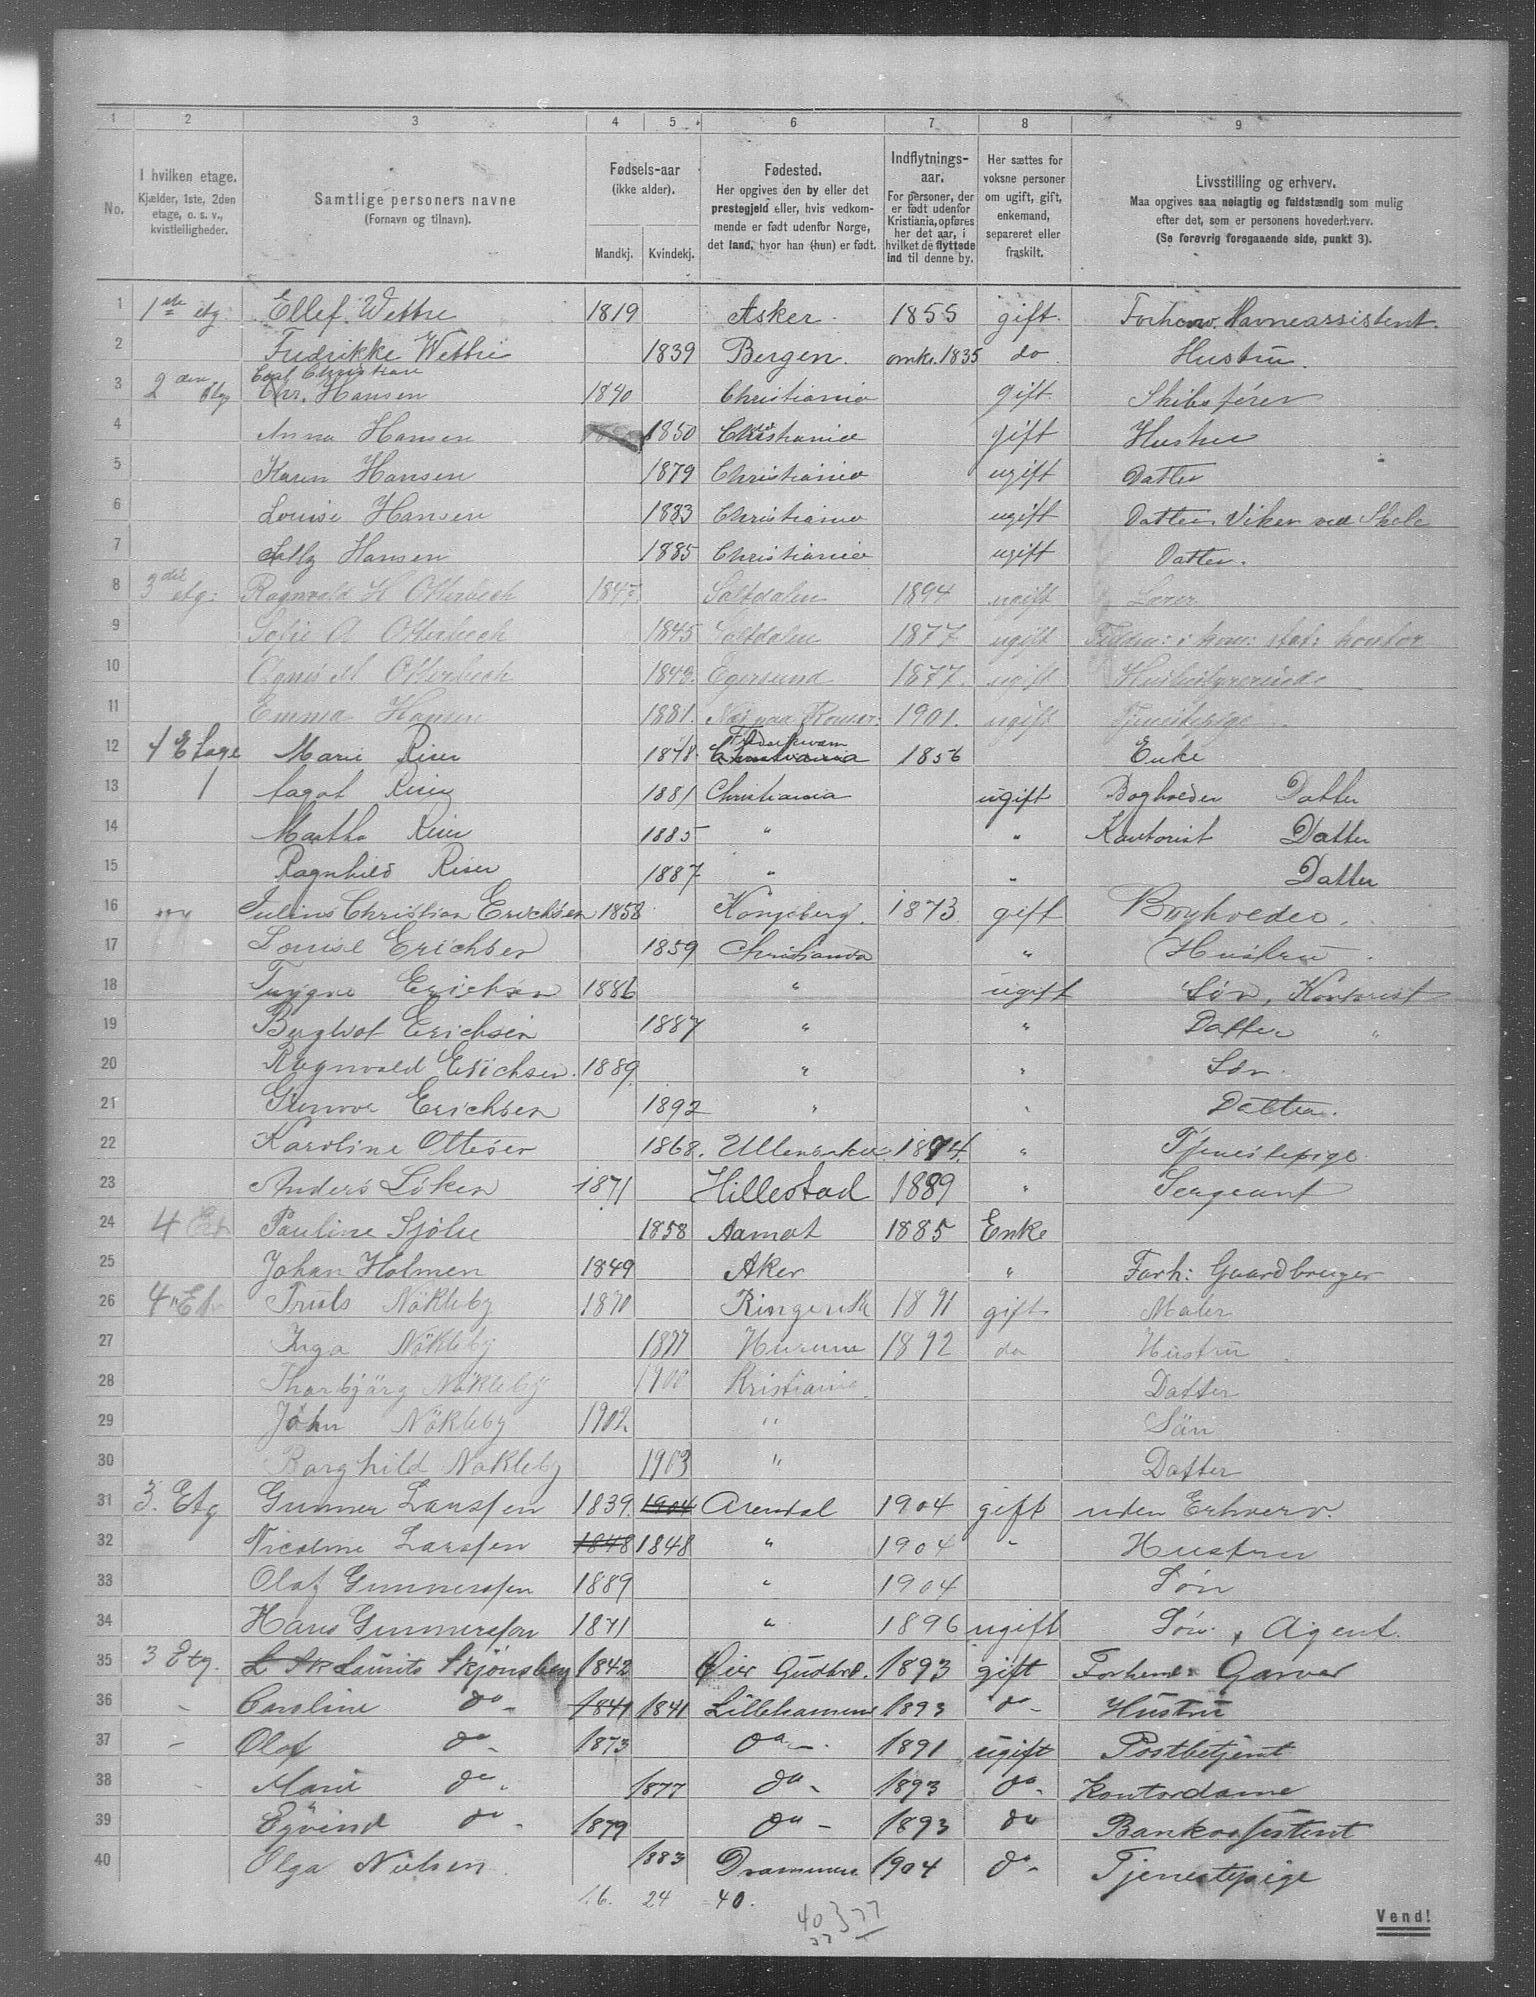 1 2 3 4 5 6 7 8 9
No. I hvilken etage. Kjælder, 1ste, 2den etage, o. s. v., kvistleiligheder. Samtlige personers navne (Fornavn og tilnavn). Fødsels-aar (ikke alder). Mandkj. Kvindekj. Fødested. Her opgives den by eller det prestegjeld eller, hvis vedkommende er født udenfor Norge, det land, hvor han (hun) er født. Indflytnings-aar. For personer, der er født udenfor Kristiania, opføres her det aar, i hvilket de flyttede ind til denne by. Her sættes for voksne personer om ugift, gift, enkemand, separeret eller fraskilt. Livsstilling og erhverv. Maa opgives saa nøiagtig og fuldstændig som mulig efter det, som er personens hovederhverv. (Se forøvrig foregaaende side, punkt 3).
1 1ste etg. Ellef Wettre 1819 Asker 1855 gift Forhenv. Havneassistent.
2 Fredrikke Wettre 1839 Bergen. omkr. 1835 do Hustru.
3 2den Etg Carl Christian Chr. Hansen 1840 Christiania gift Skibsfører
4 Anna Hansen 1850 Christiania gift Hustru
5 Karen Hansen 1879 Christiania ugift Datter
6 Louise Hansen 1883 Christiania ugift Datter Vikar ved Skole
7 Hansen 1885 Christiania ugift Datter.
8 3die etg: Ragnvald H Otterbech 184 Saltdalen 1894 ugift Lærer
9 Sofie A Otterbech 1845 Saltdalen 1877 ugift i kom: stat: kontor
10 Agnes M Otterbech 184 Egersund 1877. ugift Husbestyrerinde
11 Emma Hansen 1881. Næs paa Romer: 1901. ugift Tjenestepige
12 4 Etage Marie Riser 1848 Christiania 1856 Enke
13 1 Aagot Riser 1881 Christiania ugift Bogholder Datter
14 Martha Riser 1885 " " Kontorist Datter
15 Ragnhild Riser 1887 " " Datter
16 Julius Christian Erichsen 1858 Kongsberg. 1873 gift Bogholder.
17 Louise Erichsen 1859 Christiania " Hustru
18 Trygve Erichsen 1886 " ugift Søn, Kontorist
19 Bergliot Erichsen 1887 " " Datter "
20 Ragnvald Erichsen. 1889 " " Søn.
21 Gunvor Erichsen 1892 " " Datter.
22 Karoline Ottesen 1868. Ullensaker 1894. " Tjenestepige
23 Anders Løken 1871 Hillestad 1889 " Sergeant
24 4 Et Pauline Sjølie 1858 Aamot 1885 Enke
25 Johan Holmen 1849 Aker " Forh: Gaardbruger
26 4 Et Truls Nökleby 1870 Ringerike 1891 gift Maler
27 Inga Nökleby 1877 Hurum 1892 do Hustru
28 Thorbjörg Nökleby 1900 Kristiania Datter
29 John Nökleby 1902 " Sön
30 Borghild Nökleby 1903 " Datter
31 3. Etg Gunner Larssen 1839. 1904 Arendal 1904 gift uden Erhverv.
32 Nicoline Larssen 1848 1848 " 1904 " Hustru
33 Olaf Gunnerssen 1889 " 1904 Søn
34 Hans Gunnerssen 1871 " 1896 ugift Søn, Agent.
35 3 Etg. Laurits Skjönsberg 1842 Øier Gudbrd. 1893 gift Forhend. Garver
36 - Caroline do - 1841 1841 Lillehammer 1893 do - Hustru
37 - Olaf do - 1873 do - 1891 ugift Postbetjent
38 - Marie do - 1877 do - 1893 do - Kontordame
39 Eyvind do - 1879 do - 1893 do Bankassistent
40 Olga Nielsen 1883 Drammen 1904 do - Tjenestepige
16. 24 40.
40 } 77
37
Vend!